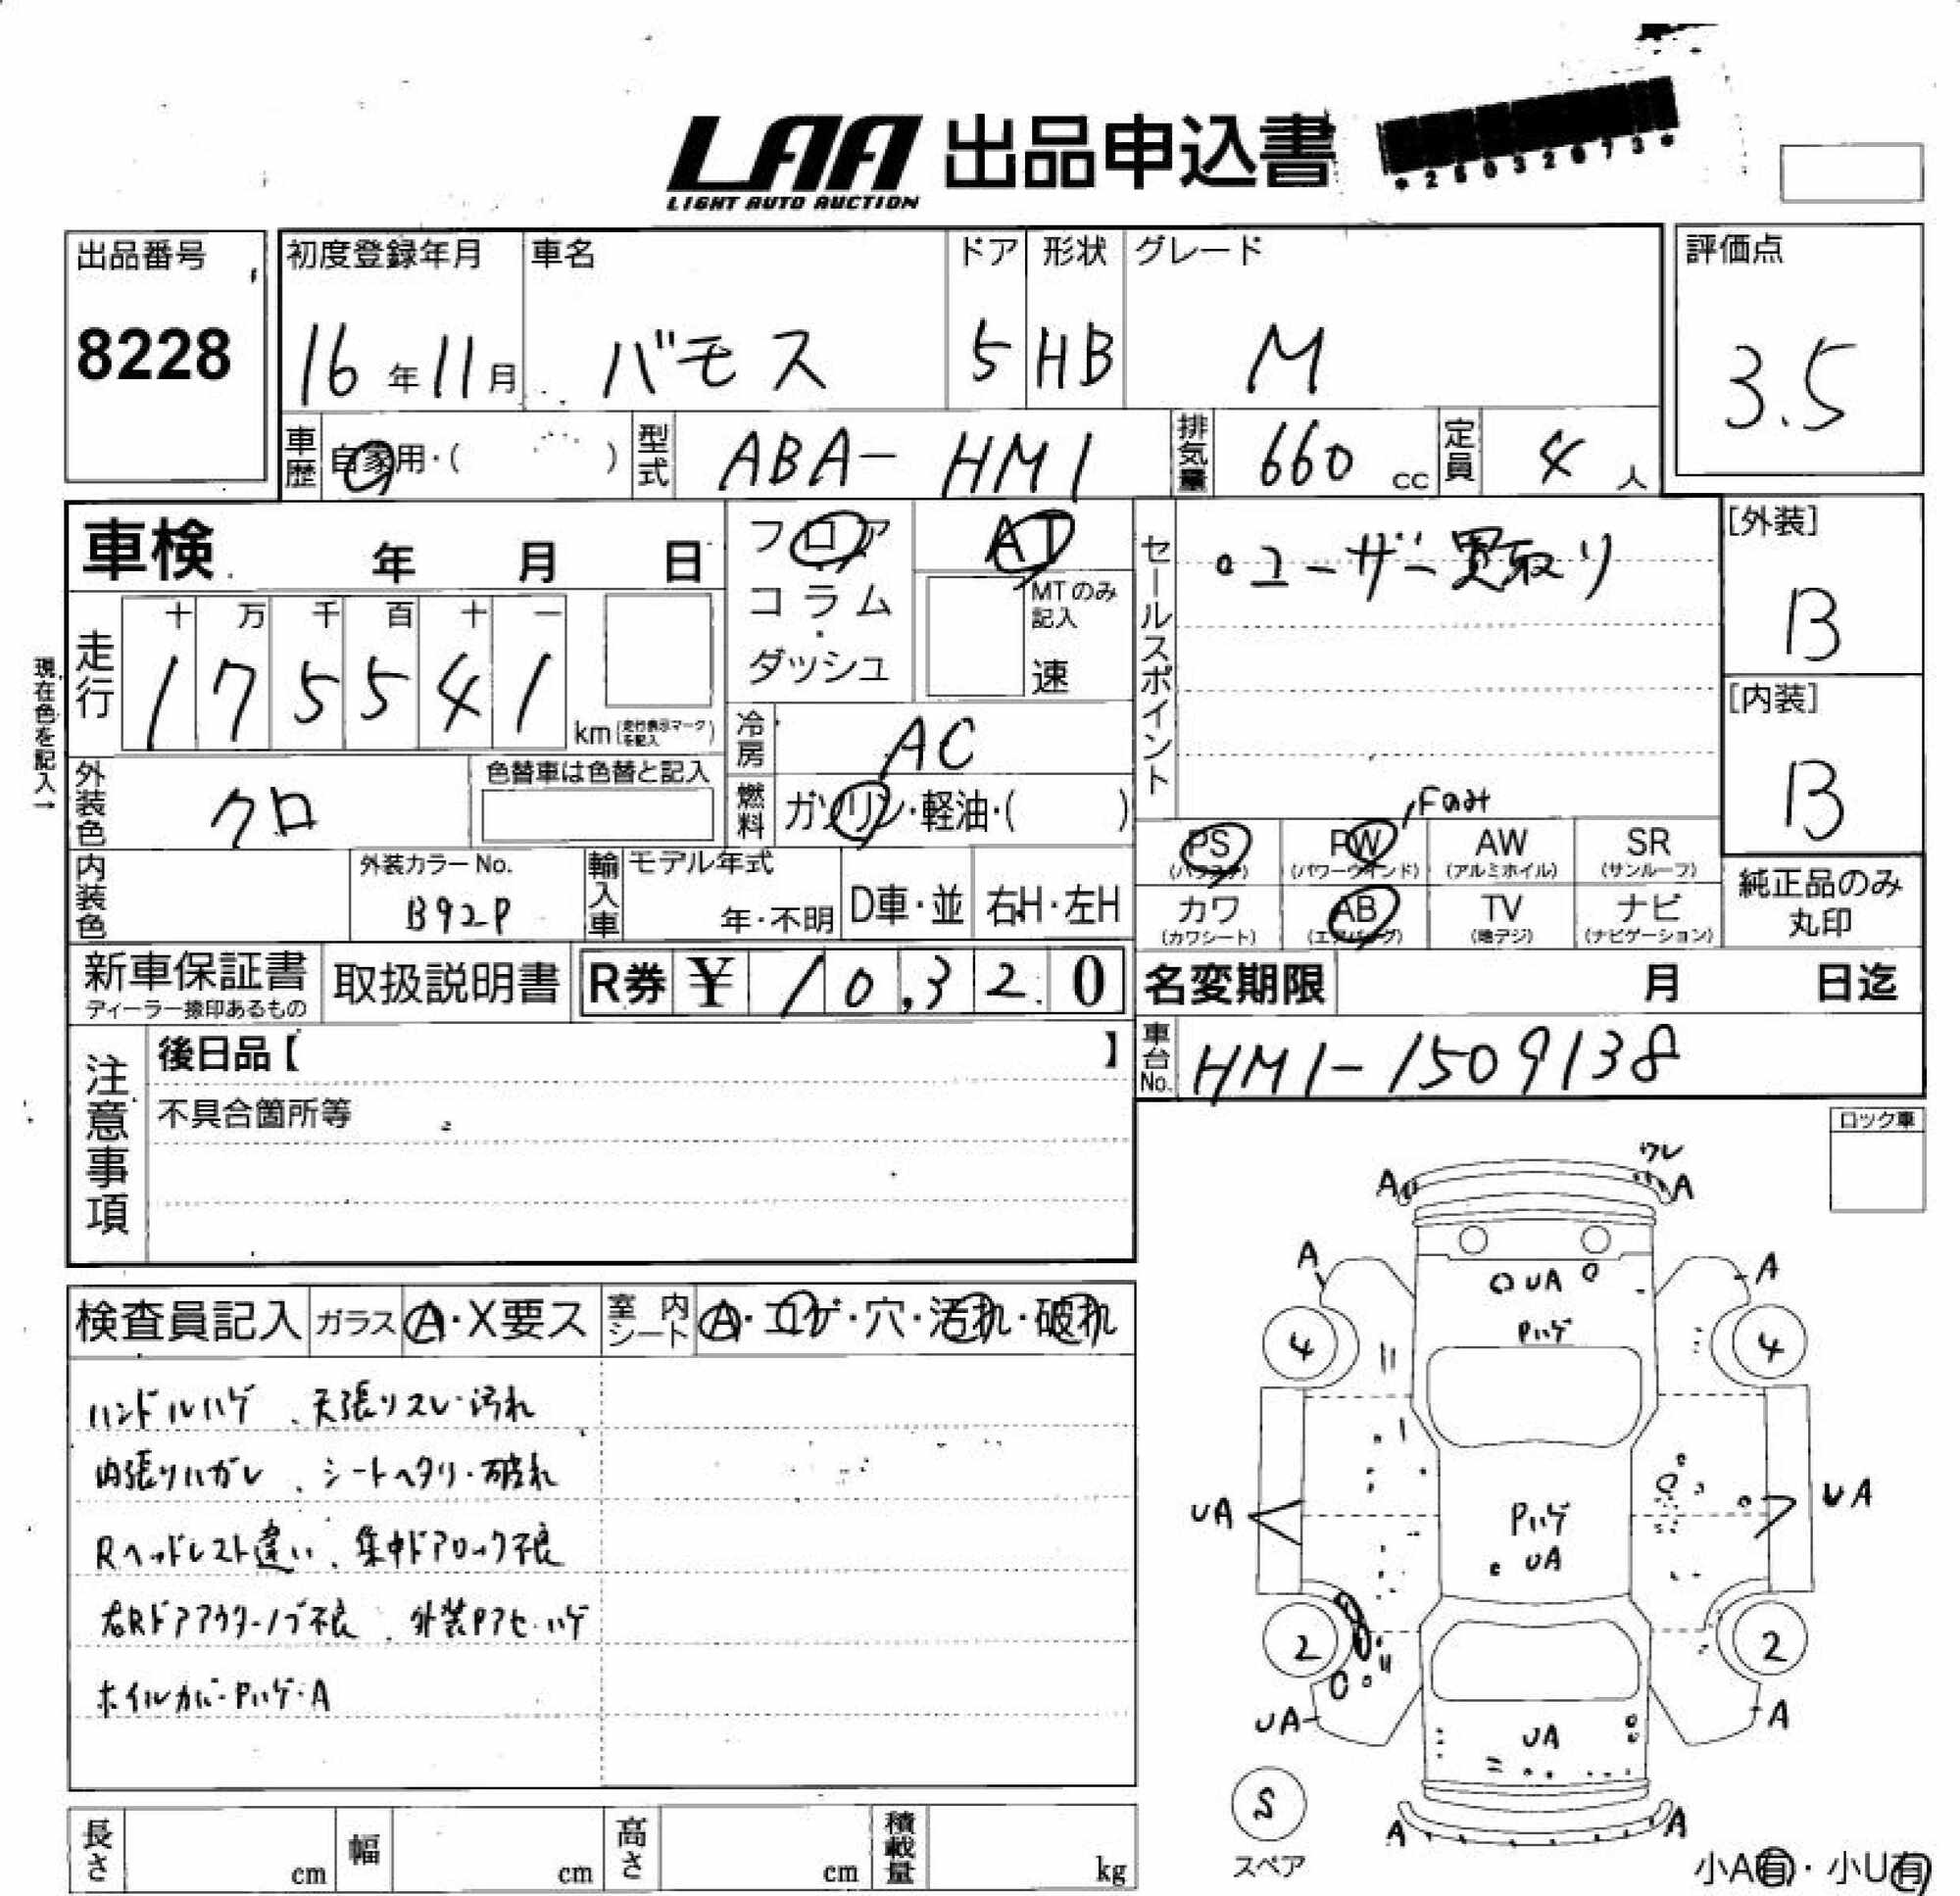 LAA 出品申込書
LIGHT AUTO AUCTION
*25032673*
出品番号
8228
初度登録年月
16年11月
車名
バモス
ドア
5
形状
HB
グレード
M
評価点
3.5
車歴
自家用・( )
型式
ABA-HM1
排気量
660 cc
定員
4人
車検 年 月 日
フロア
コラム
・
ダッシュ
AT
MTのみ
記入
速
セールスポイント
・ユーザー買取り
[外装]
B
[内装]
B
現在色を記入→
走行
十 万 千 百 十 一
1 7 5 5 4 1
km(走行表示マークを記入)
冷房
AC
外装色
クロ
色替車は色替と記入
燃料
ガソリン・軽油・( )
PS
(パワステ)
PW
(パワーウインド)
AW
(アルミホイル)
SR
(サンルーフ)
内装色
外装カラーNo.
B92P
輸入車
モデル年式
年・不明
D車・並
右H・左H
カワ
(カワシート)
AB
(エアバッグ)
TV
(地デジ)
ナビ
(ナビゲーション)
純正品のみ
丸印
新車保証書
ディーラー捺印あるもの
取扱説明書
R券 ¥ 10,320
名変期限 月 日迄
注意事項
後日品【 】
不具合箇所等
車台No.
HM1-1509138
ロック車
検査員記入
ガラス
A・X要ス
室内シート
A・コゲ・穴・汚れ・破れ
ハンドルハゲ、天張りスレ・汚れ
内張りハガレ、シートヘタリ・破れ
Rヘッドレスト違い、集中ドアロック不良
右Rドアアウターノブ不良、外装Pアセ・ハゲ
ホイルカバーPハゲ・A
ワレ
A A
A A
UA
Pハゲ
4 4
UA UA
Pハゲ
UA
2 2
UA A
UA
S
スペア
A A
小A有・小U有
長さ cm
幅 cm
高さ cm
積載量 kg